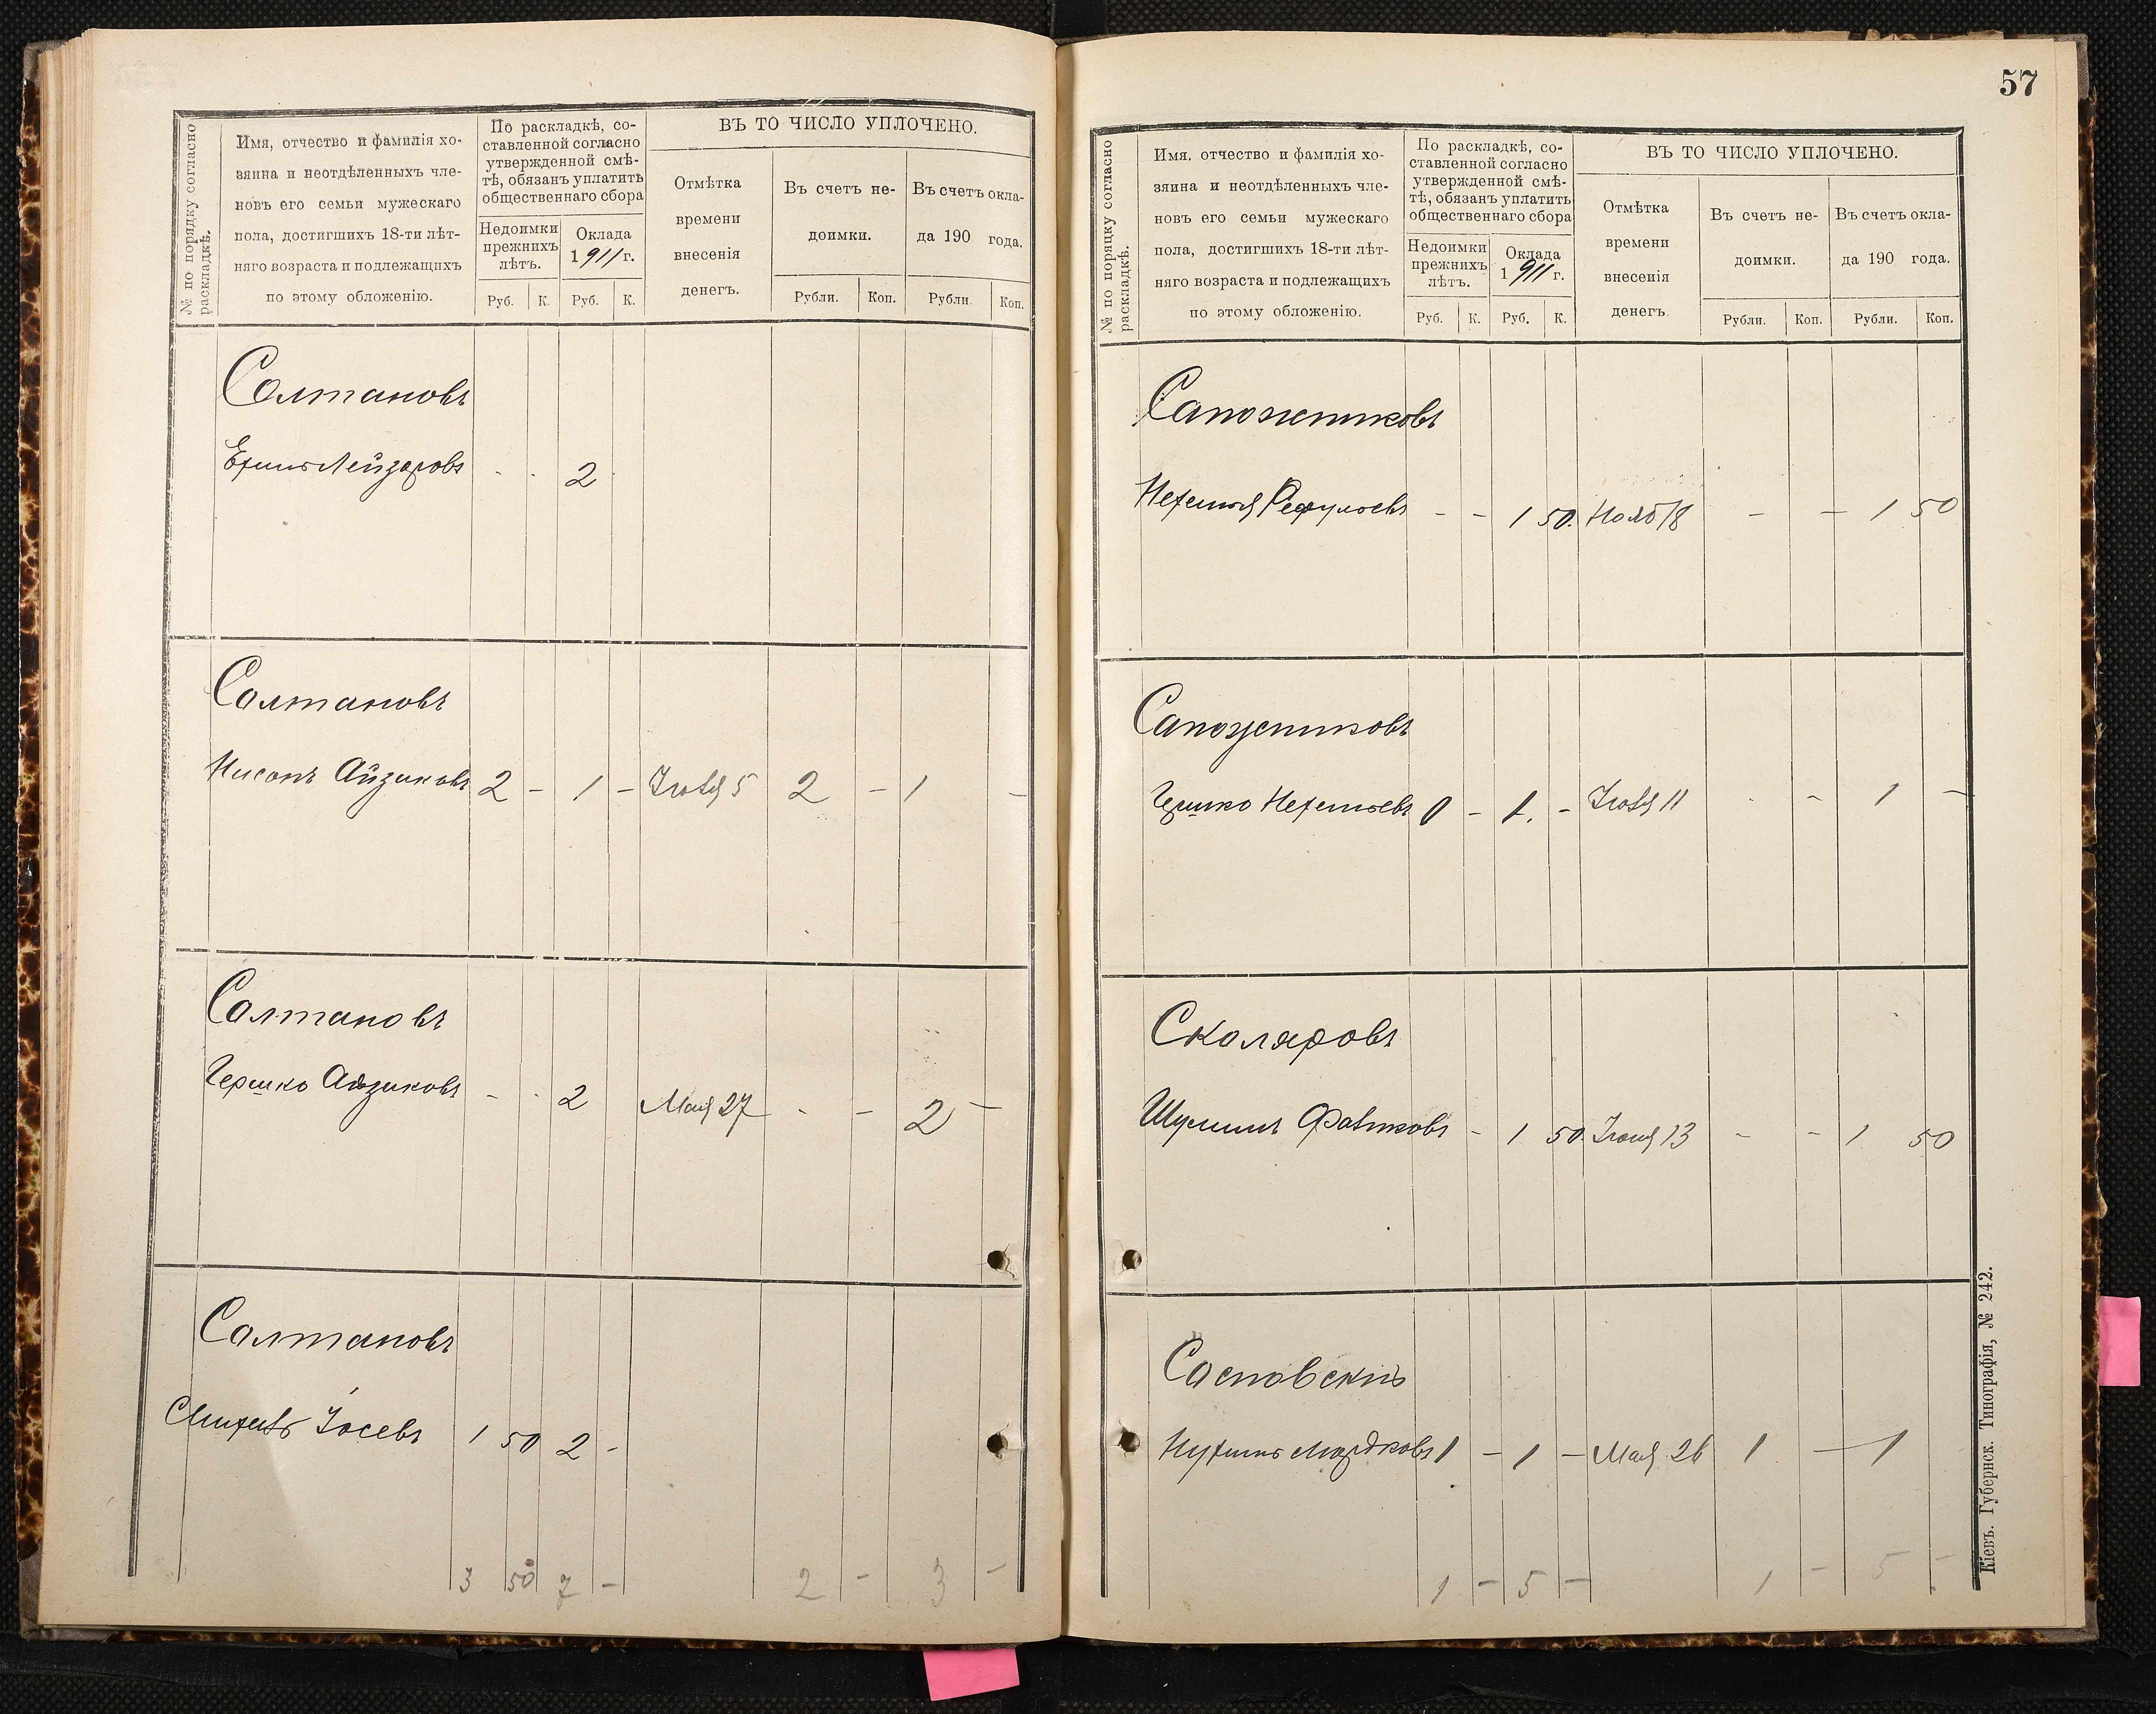 57
№ по порядку согласно раскладкѣ.
Имя, отчество и фамилія хо-
зяина и неотдѣленныхъ чле-
новъ его семьи мужескаго
пола, достигшихъ 18-ти лѣт-
няго возраста и подлежащихъ
по этому обложенію.
По раскладкѣ, со-
ставленной согласно
утвержденной смѣ-
тѣ, обязанъ уплатить
общественнаго сбора
Недоимки
прежнихъ
лѣтъ.
Оклада
1911 г.
ВЪ ТО ЧИСЛО УПЛОЧЕНО.
Отмѣтка
времени
внесенія
денегъ.
Въ счетъ не-
доимки.
Въ счетъ окла-
да 190 года.
Руб. К. Руб. К. Рубли. Коп. Рубли Коп.
Солтановъ
Лейзеровъ - - 2
Солтановъ
Нисонъ Айзиковъ 2 - 1 - Іюля 5 2 - 1 -
Солтановъ
Гершко Айзиковъ - - 2 Мая 27 - - 2 -
Солтановъ
Іосевъ 1 50 2 -
3 50 7 - 2 - 3 -
№ по порядку согласно раскладкѣ.
Имя. отчество и фамилія хо-
зяина и неотдѣленныхъ чле-
новъ его семьи мужескаго
пола, достигшихъ 18-ти лѣт-
няго возраста и подлежащихъ
по этому обложенію.
По раскладкѣ, со-
ставленной согласно
утвержденной смѣ-
тѣ, обязанъ уплатить
общественнаго сбора
Недоимки
прежнихъ
лѣтъ.
Оклада
1911 г.
ВЪ ТО ЧИСЛО УПЛОЧЕНО.
Отмѣтка
времени
внесенія
денегъ.
Въ счетъ не-
доимки.
Въ счетъ окла-
да 190 года.
Руб. К. Руб. К. Рубли. Коп. Рубли. Коп.
Сапожниковъ
Нехемья - - 1 50. 18 - - 1 50
Сапожниковъ
Гершко Нехемьевъ 0 - 1. - Іюля 11 - - 1 -
Скаляровъ
- 1 50 Іюня 13 - - 1 50
Сосновскій
Нухимъ Мордковъ 1 - 1 - Мая 26 1 - 1
1 - 5 - 1 - 5 -
Кіевъ. Губернск. Типографія, № 242.